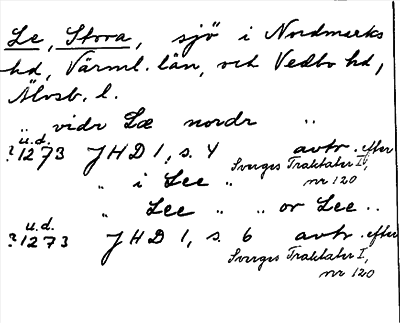 Le, Stora, sjö i Nordmarks
hd, Värml. län, och Vedbo hd,
Älvsb. l.
„ vidr Læ nordr „
u.d.
? 1273 JHD 1, s. 4 avtr. efter
Sveriges Traktater IV,
nr 120
„ i Lee „
„ Lee „ „ or Lee „
u.d.
? 1273 JHD 1, s. 6 avtr. efter
Sveriges Traktater I,
nr 120